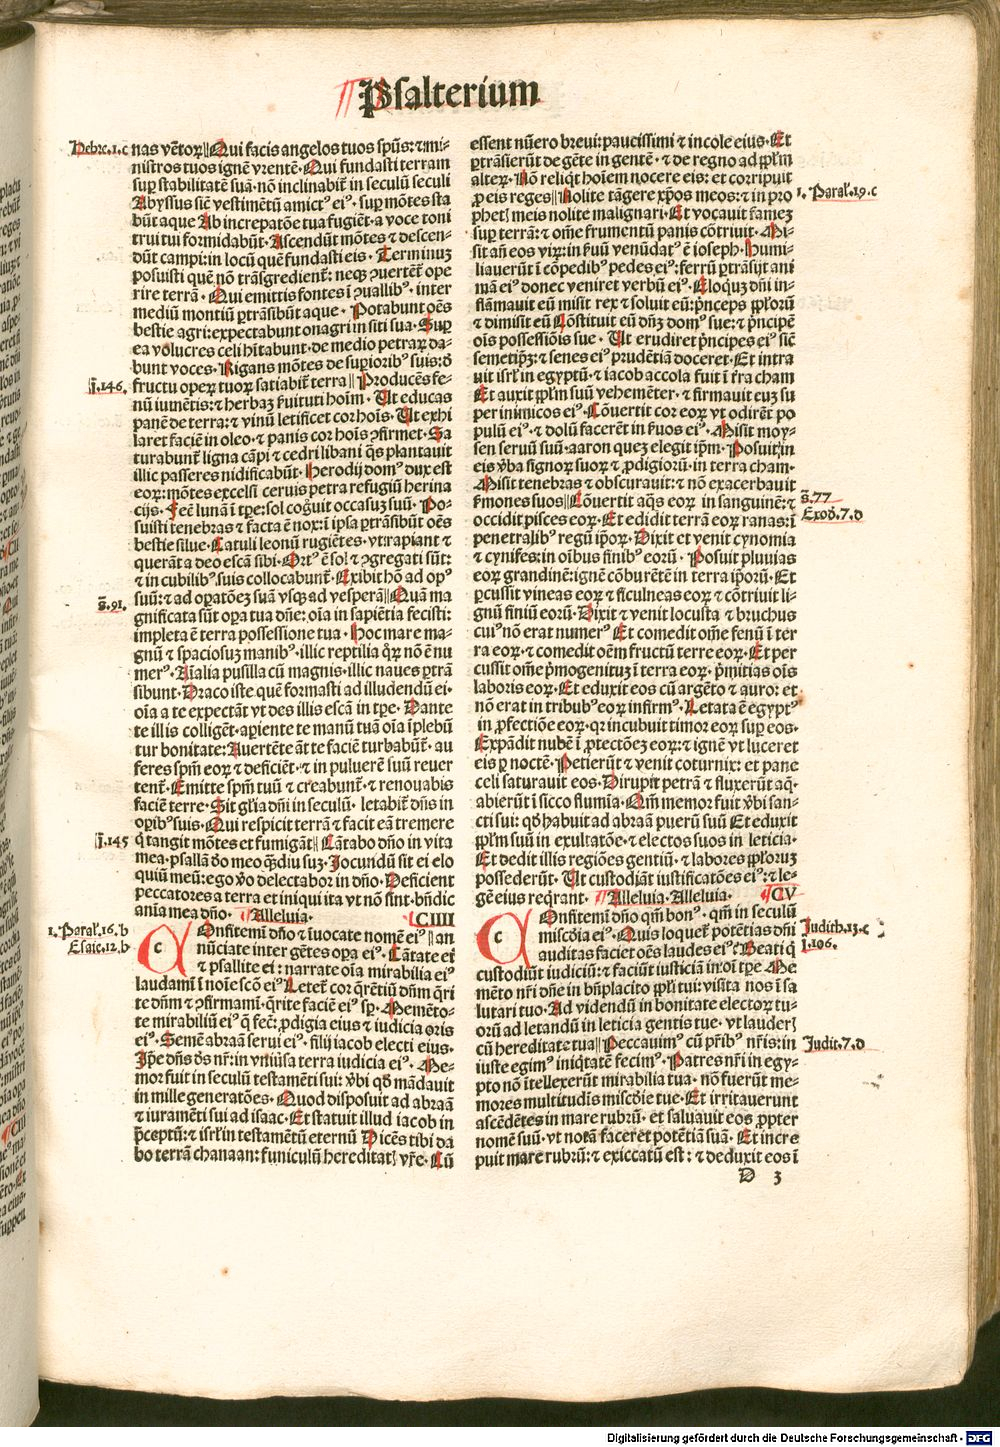 Psalterium
Hebre.1.c
nas vētoꝝ Qui facis angelos tuos spūs: ⁊ mi-
nistros tuos ignē vrentē. Qui fundasti terram
suꝑ stabilitatē suā. nō inclinabit̄ in seculū seculi
Abyssus sic̄ vestimētū amict⁹ ei⁹. suꝑ mōtes sta
būt aque Ab increpatōe tua fugiēt. a voce toni
trui tui formidabūt. Ascendūt mōtes ⁊ descen-
dūt campi: in locū quē fundasti eis. Terminuꝫ
posuisti quē nō trāsgredient̄: neqꝫ ꝯuertēt̄ ope
rire terrā. Qui emittis fontes ī ꝯuallib⁹. inter
mediū montiū ꝑtrāsibūt aque. Potabunt oēs
bestie agri: expectabunt onagri in siti sua. Suꝑ
ea volucres celi hītabunt. de medio petraꝝ da-
bunt voces. Rigans mōtes de suꝑiorib⁹ suis: ð
ī.146.
fructu opeꝝ tuoꝝ satiabit̄ terra Producēs fe-
nū iumētis: ⁊ herbaꝫ ẜuituti hoīm. Ut educas
panē de terra: ⁊ vinū letificet cor hoīs. Ut exhi
laret faciē in oleo. ⁊ panis cor hoīs ꝯfirmet. Sa
turabunt̄ ligna cāpi ⁊ cedri libani q̄s plantauit
illic passeres nidificabūt. Herodij dom⁹ dux est
eoꝝ: mōtes excelsi ceruis petra refugiū herina
cijs. Fec̄ lunā ī tꝑe: sol coḡuit occasuꝫ suū. Po-
suisti tenebras ⁊ facta ē nox: ī ipsa ꝑtrāsibūt oēs
bestie silue. Catuli leonū rugiētes. vt rapiant ⁊
querāt a deo escā sibi. Ort⁹ ē sol ⁊ ꝯgregati sūt:
⁊ in cubilib⁹ suis collocabunt̄. Exibit hō ad op⁹
s̄.91.
suū: ⁊ ad oꝑatōeꝫ suā vsqꝫ ad vesperā Quā ma
gnificata sūt oꝑa tua dn̄e: oīa in sapiētia fecisti:
impleta ē terra possessione tua. Hoc mare ma-
gnū ⁊ spaciosuꝫ manib⁹. illic reptilia q̄ꝝ nō ē nu
mer⁹. Aīalia pusilla cū magnis. illic naues ꝑtrā
sibunt. Draco iste quē formasti ad illudendū ei.
oīa a te expectāt vt des illis escā in tꝑe. Dante
te illis colligēt. apiente te manū tuā oīa īplebū
tur bonitate: Auertēte āt te faciē turbabūt̄. au
feres spm̄ eoꝝ ⁊ deficiēt. ⁊ in puluerē suū reuer
tent̄. Emitte spm̄ tuū ⁊ creabunt̄. ⁊ renouabis
faciē terre. Sit gl̄ia dn̄i in seculū. letabit̄ dn̄s in
oꝑib⁹ suis. Qui respicit terrā ⁊ facit eā tremere
ī.145
q̄ tangit mōtes et fumigāt Cātabo dn̄o in vita
mea. psallā ðo meo q̄ꝫdiu suꝫ. Jocundū sit ei elo
quiū meū: ego ṽo delectabor in dn̄o. Deficient
peccatores a terra et iniqui ita vt nō sint. bn̄dic
anīa mea dn̄o. Alleluia. CIIII
1.Paral̓.16.b
Esaie.12.b
c
Onfitemī dn̄o ⁊ īuocate nomē ei⁹ an
nūciate inter gētes oꝑa ei⁹. Cātate ei
⁊ psallite ei: narrate oīa mirabilia ei⁹
laudamī ī noīe scō ei⁹ Letet̄ cor q̄rētiū dn̄m q̄ri
te dn̄m ⁊ ꝯfirmamī. q̄rite faciē ei⁹ sꝑ. Memēto-
te mirabiliū ei⁹ q̄ fec̄: ꝓdigia eius ⁊ iudicia oris
ei⁹. Semē abraā serui ei⁹. filij iacob electi eius.
Ip̄e dn̄s ðs nr̄: in vniūsa terra iudicia ei⁹. Me-
mor fuit in seculū testamēti sui: v̄bi qð mādauit
in mille generatōes. Quod disposuit ad abraā
⁊ iuramēti sui ad isaac. Et statuit illud iacob in
p̄ceptū: ⁊ isrl̄ in testamētū eternū Dicēs tibi da
bo terrā chanaan: funiculū hereditat̄ vr̄e. Cū
essent nūero breui: paucissimi ⁊ incole eius. Et
ꝑtrāsierūt de gēte in gentē. ⁊ de regno ad ppl̄m
alteꝝ. Nō reliq̄t hoīem nocere eis: et corripuit
1. Paral̓.19.c
ꝓ eis reges Nolite tāgere xp̄os meos: ⁊ in pro
phet̄ meis nolite malignari. Et vocauit fameꝫ
suꝑ terrā: ⁊ om̄e frumentū panis cōtriuit. Mi-
sit an̄ eos viꝝ: in ẜuū venūdat⁹ ē ioseph. Humi-
liauerūt ī cōpedib⁹ pedes ei⁹: ferrū ꝑtrāsijt ani
mā ei⁹ donec veniret verbū ei⁹. Eloquꝫ dn̄i in-
flāmauit eū misit rex ⁊ soluit eū: pn̄ceps ppl̄orū
⁊ dimisit eū Cōstituit eū dn̄ꝫ dom⁹ sue: ⁊ p̄ncipē
oīs possessiōis sue. Ut erudiret p̄ncipes ei⁹ sic̄
semetip̄ꝫ: ⁊ senes ei⁹ prudētiā doceret. Et intra
uit isrl̄ in egyptū. ⁊ iacob accola fuit ī t̄ra cham
Et auxit ppl̄m suū vehemēter. ⁊ firmauit euꝫ su
per inimicos ei⁹. Cōuertit cor eoꝝ vt odirēt po
pulū ei⁹. ⁊ dolū facerēt in ẜuos ei⁹. Misit moy-
sen seruū suū. aaron queꝫ elegit ip̄m. Posuit in
eis v̄ba signoꝝ suoꝝ ⁊ ꝓdigiorū. in terra cham.
Misit tenebras ⁊ obscurauit: ⁊ nō exacerbauit
s̄.77
ẜmones suos Cōuertit aq̄s eoꝝ in sanguinē: ⁊
Exoð.7.d
occidit pisces eoꝝ. Et edidit terrā eoꝝ ranas: ī
penetralib⁹ regū ip̄oꝝ. Dixit et venit cynomia
⁊ cynifes: in oībus finib⁹ eorū. Posuit pluuias
eoꝝ grandinē: ignē cōburētē in terra ip̄orū. Et
ꝑcussit vineas eoꝝ ⁊ ficulneas eoꝝ ⁊ cōtriuit li-
gnū finiū eorū. Dixit ⁊ venit locusta ⁊ bruchus
cui⁹ nō erat numer⁹ Et comedit om̄e fenū ī ter
ra eoꝝ. ⁊ comedit oēm fructū terre eoꝝ. Et per
cussit om̄e p̄mogenituꝫ ī terra eoꝝ. p̄mitias oīs
laboris eoꝝ. Et eduxit eos cū argēto ⁊ auro: et
nō erat in tribub⁹ eoꝝ infirm⁹. Letata ē egypt⁹
in ꝓfectiōe eoꝝ. qꝛ incubuit timor eoꝝ suꝑ eos.
Expādit nubē ī ꝓtectōeꝫ eoꝝ: ⁊ ignē vt luceret
eis ꝑ noctē. Petierūt ⁊ venit coturnix: et pane
celi saturauit eos. Dirupit petrā ⁊ fluxerūt aq̄.
abierūt ī sicco flumīa. Qm̄ memor fuit v̄bi san-
cti sui: qð habuit ad abraā puerū suū Et eduxit
ppl̄m suū in exultatōe. ⁊ electos suos in leticia.
Et dedit illis regiōes gentiū. ⁊ labores ppl̄oruꝫ
possederūt. Ut custodiāt iustificatōes ei⁹: ⁊ le-
gē eius reqrant. Alleluia. Alleluia. CV
c
Judith.13.c
ī.106.
Onfitemī dn̄o qm̄ bon⁹. qm̄ in seculū
miscðia ei⁹. Quis loquet̄ potētias dn̄i
auditas faciet oēs laudes ei⁹: Beati q̄
custodiūt iudiciū: ⁊ faciūt iusticiā in oī tꝑe Me
mēto nr̄i dn̄e in bn̄placito ppl̄i tui: visita nos ī sa
lutari tuo. Ad videndū in bonitate electoꝝ tu-
orū ad letandū in leticia gentis tue. vt lauder̄
Judit.7.d
cū hereditate tua Peccauim⁹ cū pr̄ib⁹ nr̄is: in
iuste egim⁹ iniq̄tatē fecim⁹. Patres nr̄i in egy-
pto nō ītellexerūt mirabilia tua. nō fuerūt me-
mores multitudīs miscðie tue. Et irritauerunt
ascēdētes in mare rubrū. et saluauit eos ꝓpter
nomē suū. vt notā faceret potētiā suā. Et incre
puit mare rubrū: ⁊ exiccatū est: ⁊ deduxit eos ī
D 3
Digitalisierung gefördert durch die Deutsche Forschungsgemeinschaft - DFG